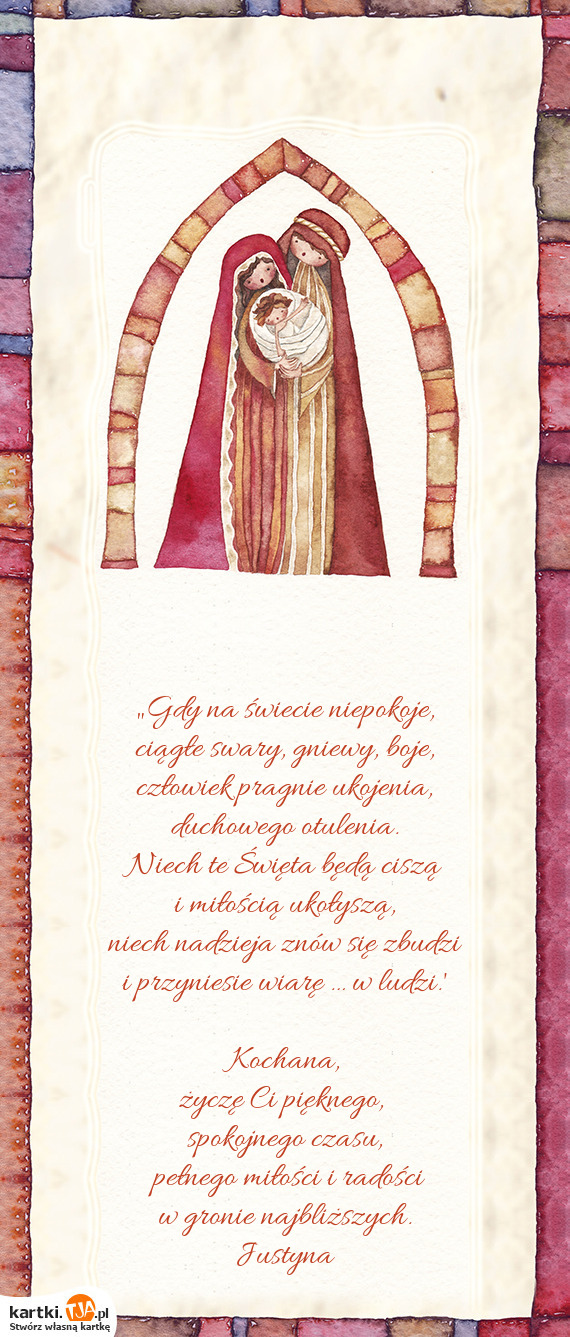 „Gdy na świecie niepokoje,
ciągłe swary, gniewy, boje,
człowiek pragnie ukojenia,
duchowego otulenia.
Niech te Święta będą ciszą
i miłością ukołyszą,
niech nadzieja znów się zbudzi
i przyniesie wiarę ... w ludzi.'
Kochana,
życzę Ci pięknego,
spokojnego czasu,
pełnego miłości i radości
w gronie najbliższych.
Justyna
kartki.TJA.pl
Stwórz własną kartkę